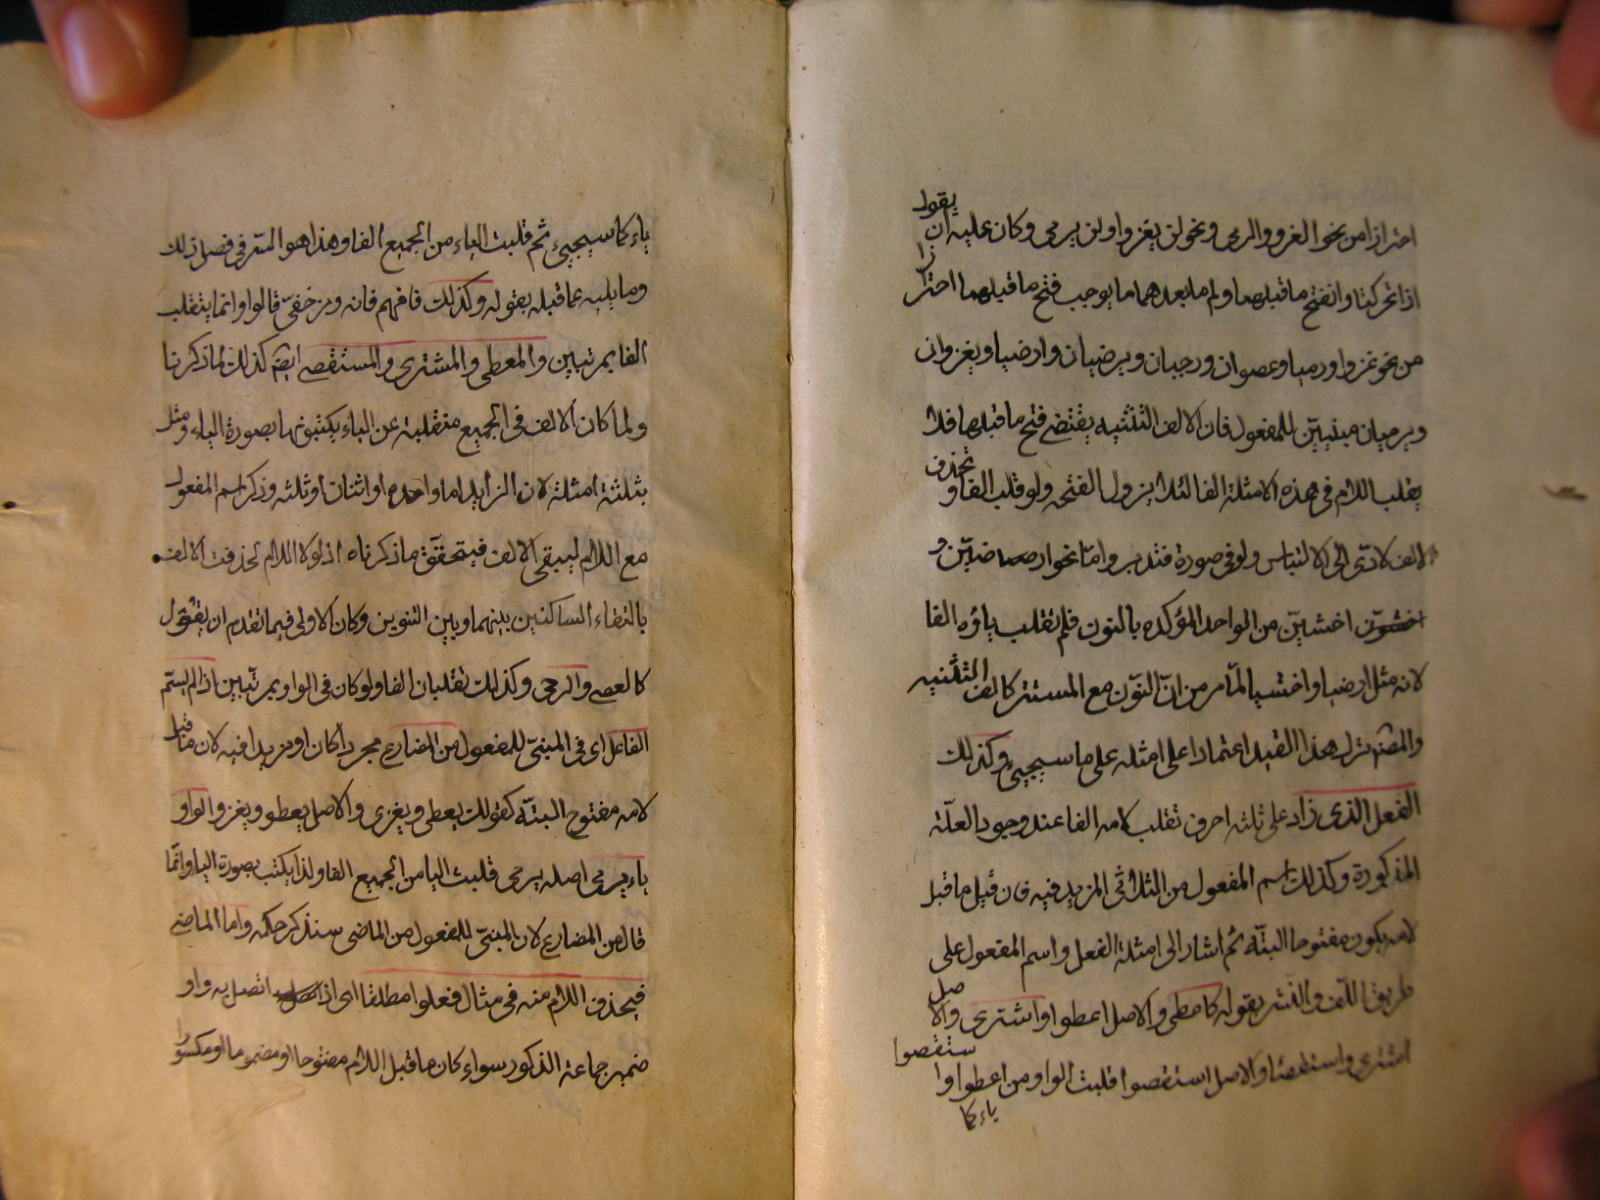 احترازا من نحو الغزو والرمي ونحو لن يغزو او لن يرمي وكان عليه ان يقول
اذا تحركتا وانفتح ما قبلهما ولم ما بعدهما ما يوجب فتح ما قبلهما احترازا
من نحو غزوا ورميا وعصوان ورحيان ويرضيان وارضيا ويغزوان
ويرميان مبنيين للمفعول فان الالف التثنيه يقتضي فتح ما قبلها فلا
يقلب اللام في هذه الامثلة الفا لئلا يزول الفتحه ولو قلب الفا و تحذف
الالف لادّى الى الالتباس ولو في صورة فتدبر وامّا نحو ارضينّ و
اخشينّ من الواحد المؤكده بالنون فلم تقلب ياؤه الفا
لانه مثل ارضيا واخشيا لمّا مر من انّ النوّن مع المستتر كالف التثنيه
والمصّ ترك هذا القيد اعتمادا على امثله على ما سيجيئ وكذلك
الفعل الذى زاد على ثلثه احرف تقلب لامه الفا عند وجود العلّة
المذكورة وكذلك اسم المفعول من الثلاثي المزيد فيه فان قيل ما قبل
لامه يكون مفتوحا البتّة ثم اشار الى امثلة الفعل واسم المفعول على
طريق اللّف والنشر بقوله كاعطى والاصل اعطو او اشترى والاصل
اشترى واستقصى والاصل استقصوا قلبت الواو من اعطو او استقصوا
ياء كما
ياء كما سيجيئ ثم قلبت الياء من الجميع الفا وهذا هو السّر في فصل ذلك
وما يليه عما قبله بقوله وكذلك فافهم فانه رمز خفيّ قالوا وانما ينقلب
الفا بمرتبين والمعطى والمشترى والمستقصى ايضّ كذلك لما ذكرنا
ولما كان الالف في الجميع منقلبة عن الياء يكتبونها بصورة الياء ومثل
بثلثة امثلة لان الزايد اما واحده او اثنان او ثلثه وذكر اسم المفعول
مع اللام ليبقى الالف فيتحقّق ما ذكرناه اذ لولا اللام لحذفت الالف
بالتقاء الساكنين بينهما وبين التنوين وكان الاولى فيما تقدم ان يقول
كالعصى والرحى وكذلك تقلبان الفا ولو كان في الواو بمرتبين اذا لم يسمّ
الفاعل اى في المبنىّ للمفعول من المضارع مجردا كان او مزيدا فيه لان ما قبل
لامه مفتوح البتّه كقولك يعطى ويغزى والاصل يعطو ويغزو الواو
ياء يرمى اصله يرمي قلبت اليا من الجميع الفا ولذا يكتب بصورة اليا وانّما
قال من المضارع لان المبنىّ للمفعول من الماضى سنذكر حكمه واما الماضى
فيحذف اللام منه في مثال فعلوا مطلقا اى اذا اتصل به واو
ضمير جماعة الذكور سواء كان ما قبل اللام مفتوحا او مضموما او مكسورا